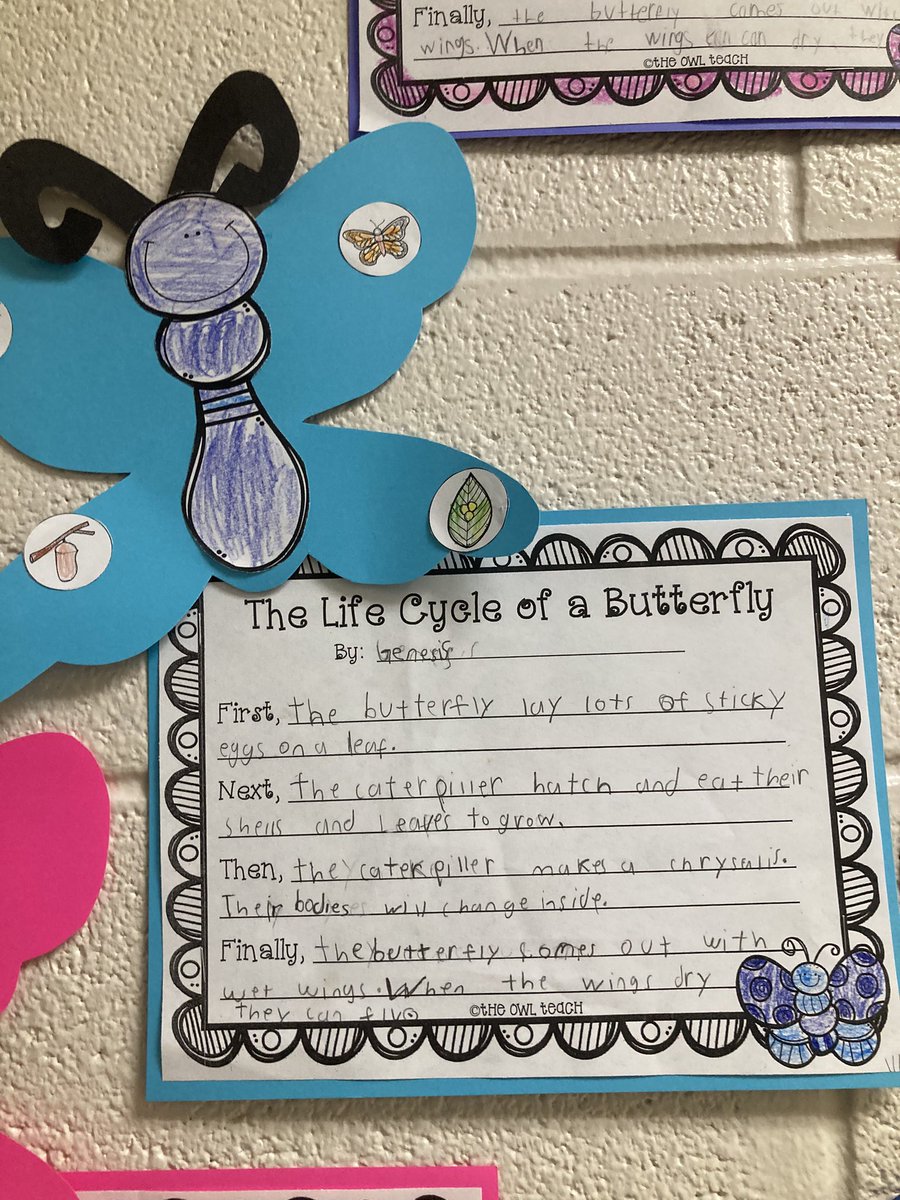 Finally, the butterfly comes out
wings. When the wings can dry. they
©THE OWL TEACH
The Life Cycle of a Butterfly
By: Genesis
First, the butterfly lay lots of sticky
eggs on a leaf.
Next, the caterpiller hatch and eat their
shells and leaves to grow.
Then, the caterpiller makes a chrysalis.
Their bodies will change inside.
Finally, the butterfly comes out with
wet wings. When the wings dry
they can
©THE OWL TEACH